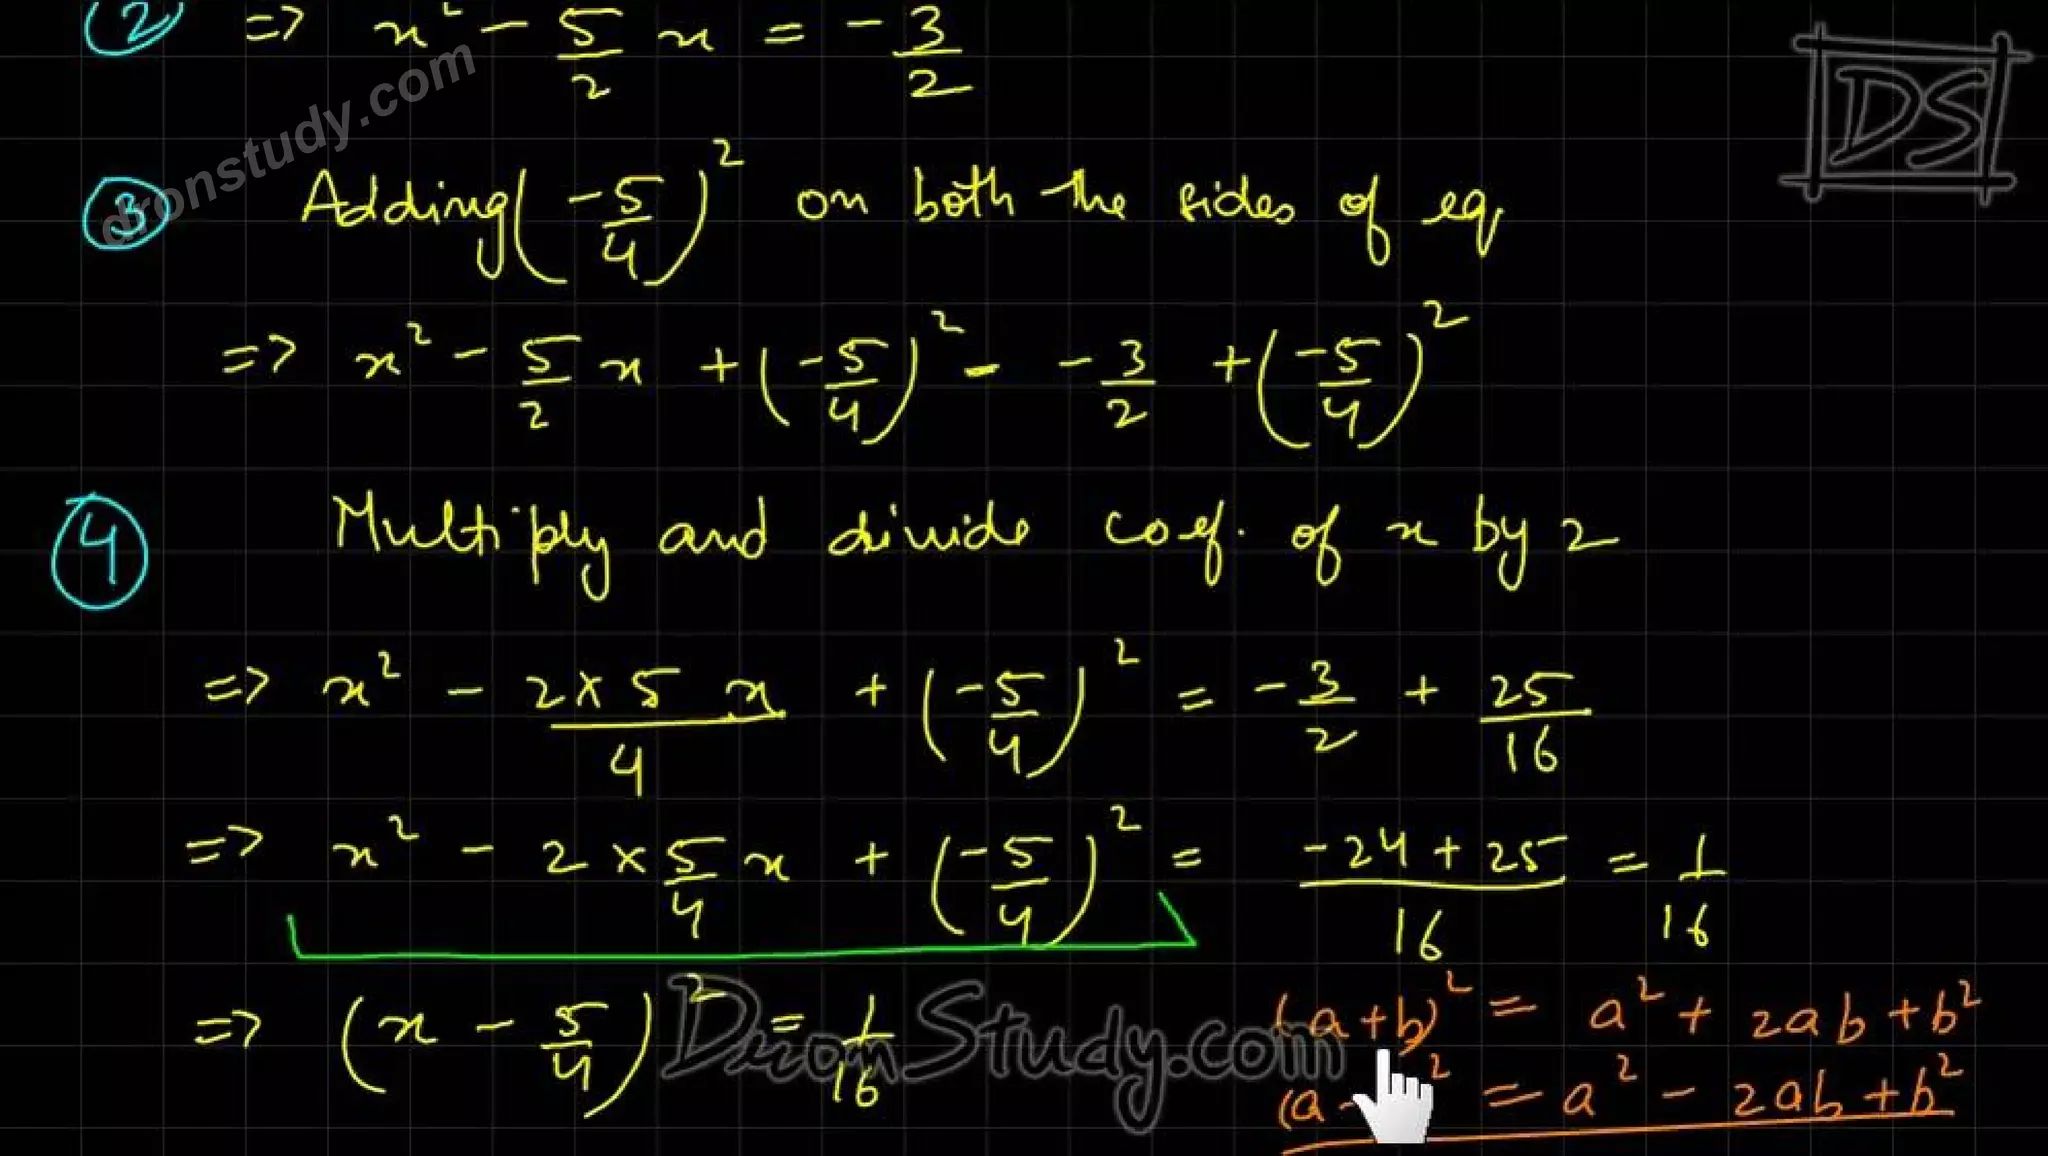 ② => x² - 5/2 x = - 3/2
dronstudy.com
DS
③ Adding (-5/4)² on both the sides of eq
=> x² - 5/2 x + (-5/4)² - - 3/2 + (-5/4)²
④ Multiply and divide coef. of x by 2
=> x² - 2×5 x/4 + (-5/4)² = - 3/2 + 25/16
=> x² - 2 × 5/4 x + (-5/4)² = -24+25/16 = 1/16
=> (x - 5/4)² = 1/16
DronStudy.com
(a+b)² = a² + 2ab + b²
(a - ² = a² - 2ab + b²